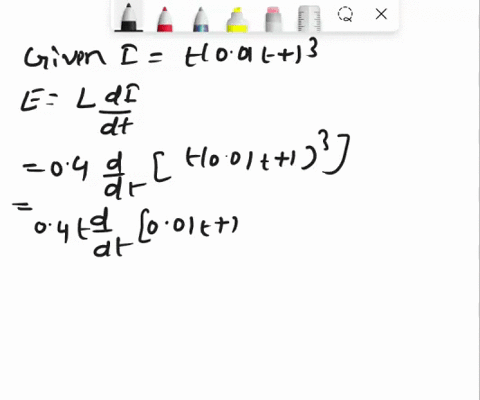 Given I = t(0.01t+1)3
E = L dI/dt
= 0.4 d/dt [ t(0.01t+1)3 ]
=
0.4 t d/dt [0.01t+1